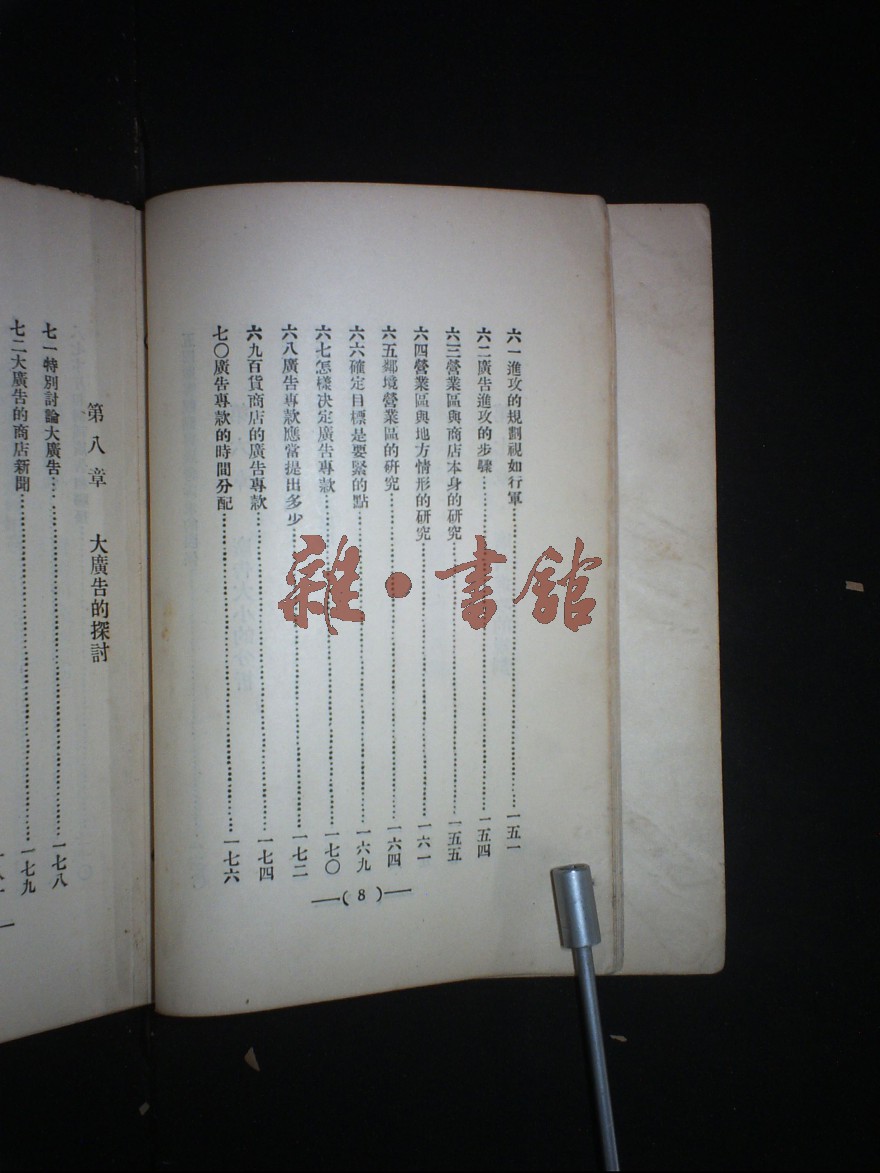 六一進攻的規劃視如行軍……一五一
六二廣告進攻的步驟……一五四
六三營業區與商店本身的研究……一五五
六四營業區與地方情形的研究……一六一
六五鄰境營業區的研究……一六四
六六確定目標是要緊的點……一六九
六七怎樣決定廣告專款……一七〇
六八廣告專款應當提出多少……一七二
六九百貨商店的廣告專款……一七四
七〇廣告專款的時間分配……一七六
—( 8 )—
第八章 大廣告的探討
七一特別討論大廣告……一七八
七二大廣告的商店新聞……一七九
雜·書館